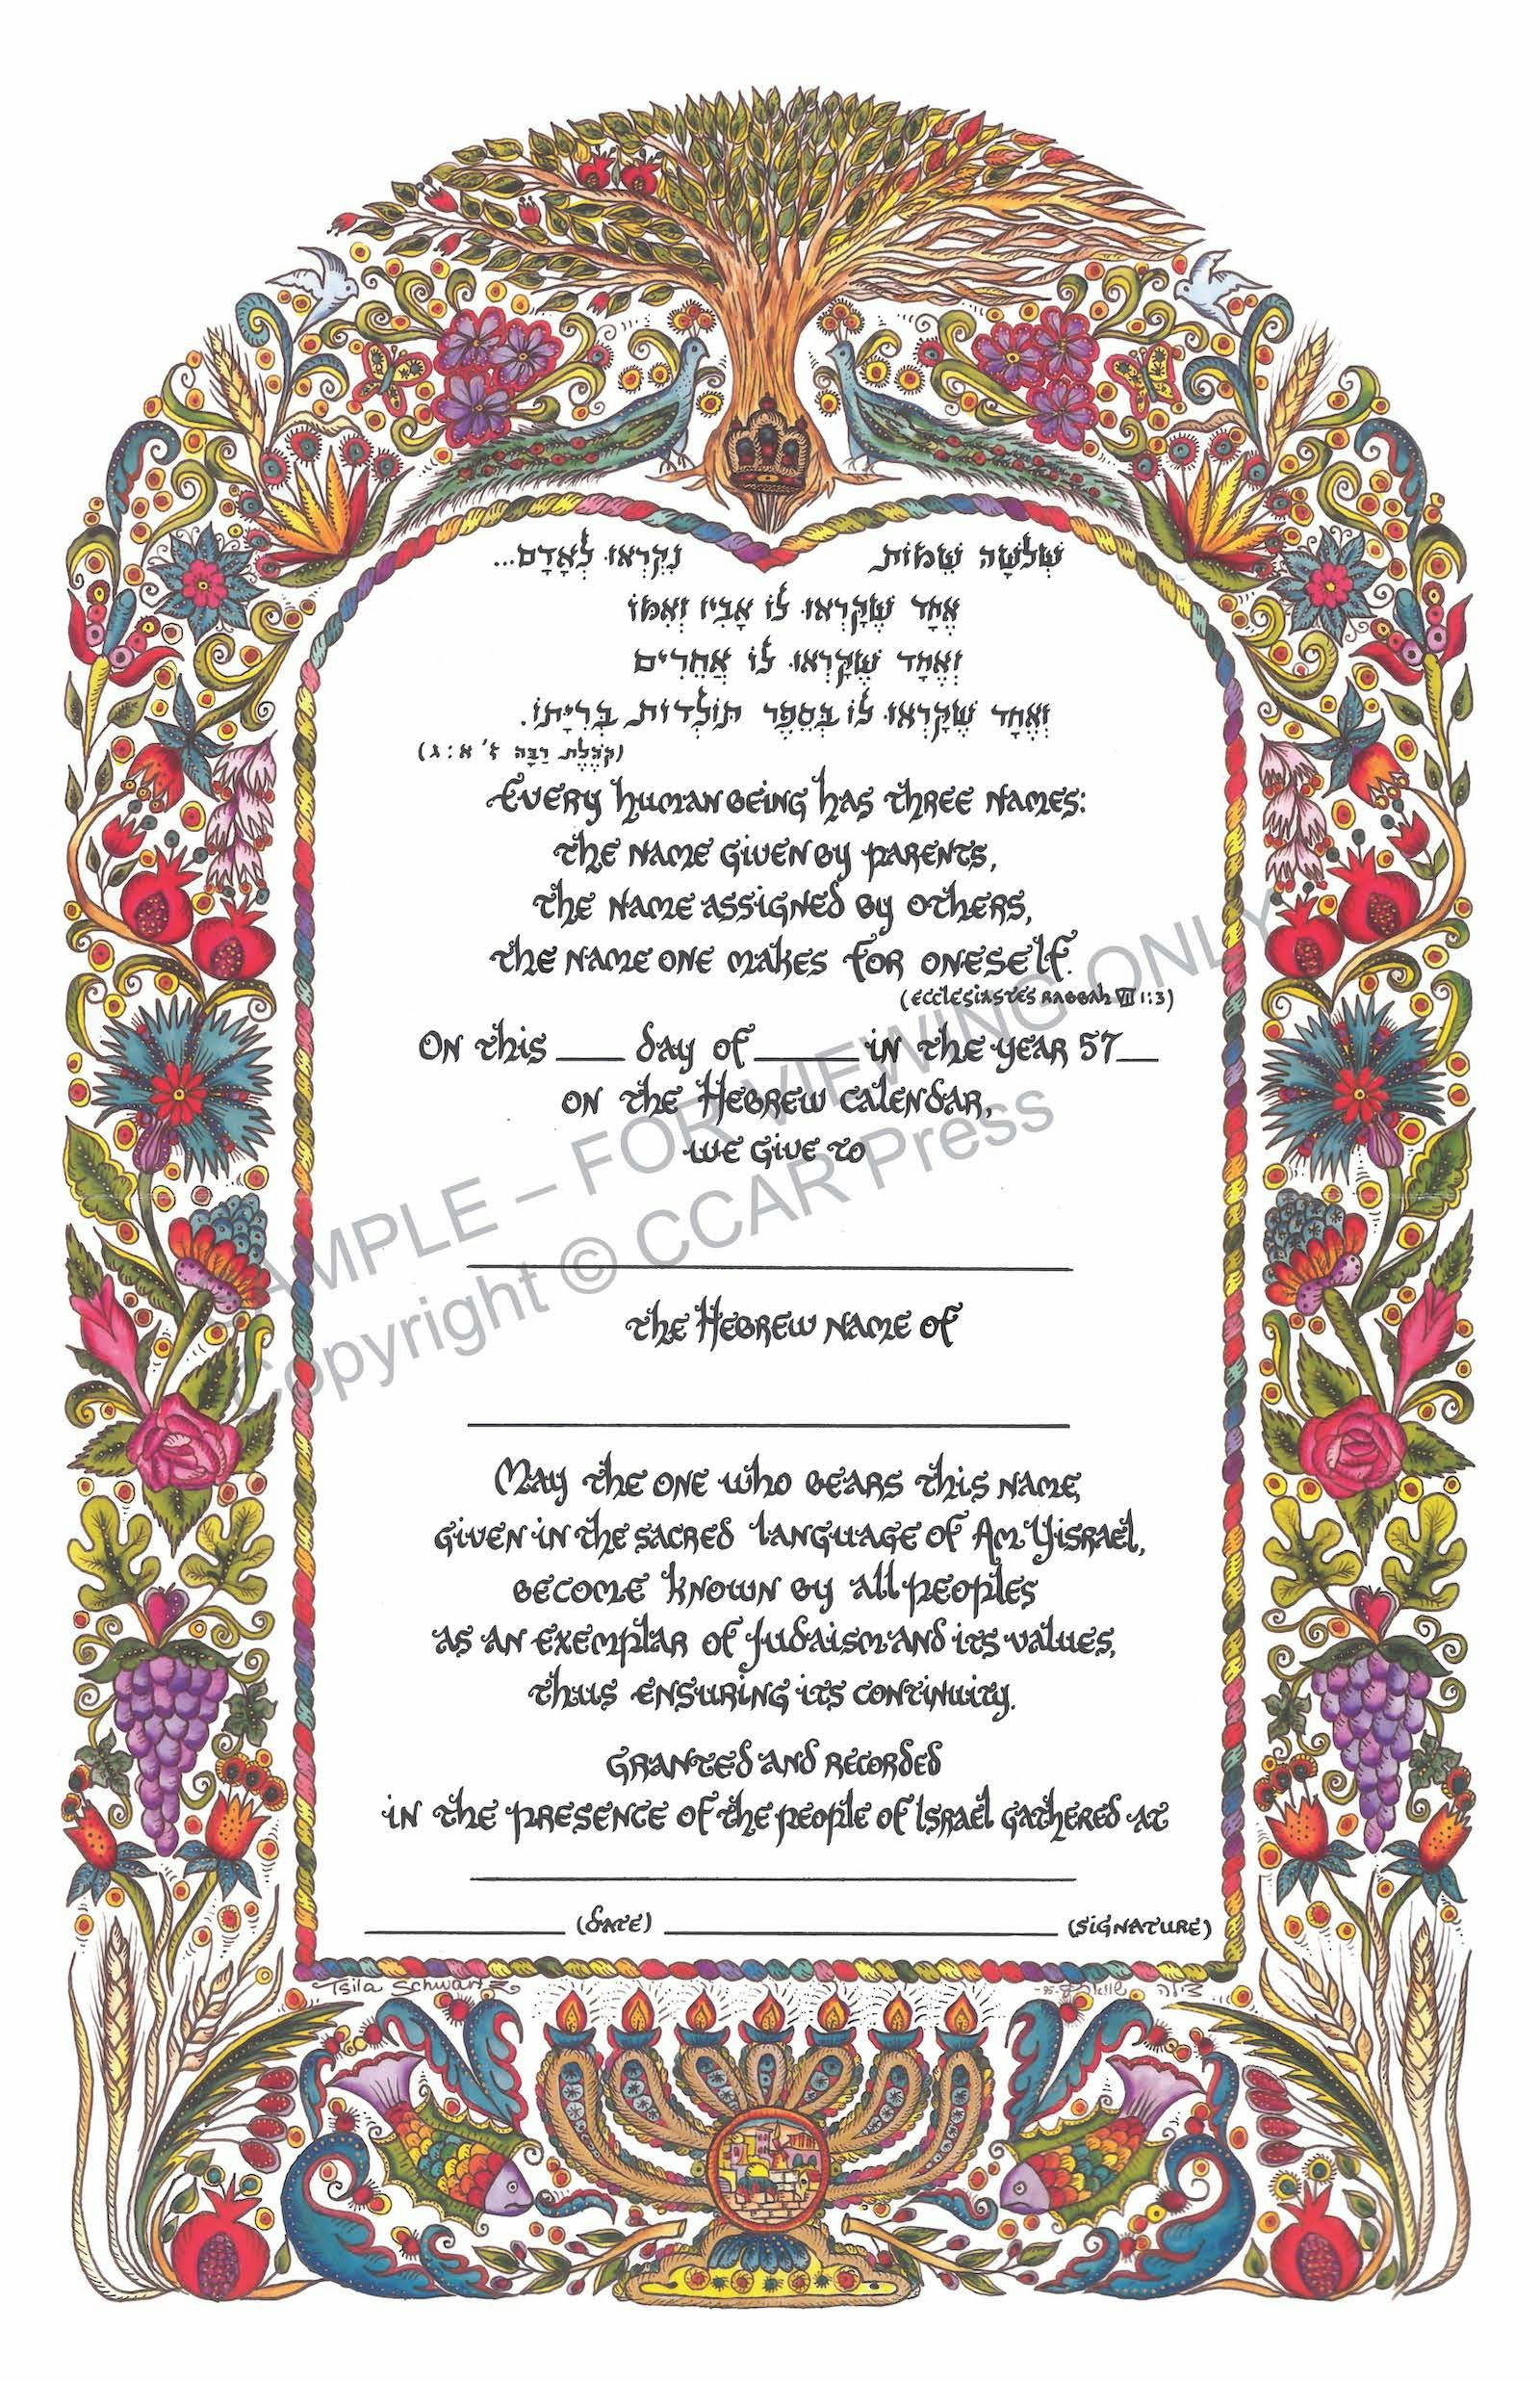 שְׁלֹשָׁה שֵׁמוֹת נִקְרְאוּ לְאָדָם...
אֶחָד שֶׁקָּרְאוּ לוֹ אָבִיו וְאִמּוֹ
וְאֶחָד שֶׁקָּרְאוּ לוֹ אֲחֵרִים
וְאֶחָד שֶׁקָּרְאוּ לוֹ בְּסֵפֶר תּוֹלְדוֹת בְּרִיָּתוֹ.
(קֹהֶלֶת רַבָּה ז' א:ג)
Every human being has three names:
the name given by parents,
the name assigned by others,
the name one makes for oneself.
(Ecclesiastes Rabbah VII 1:3)
On this ____ day of ______ in the year 57__
on the Hebrew calendar,
we give to
the Hebrew name of
May the one who bears this name,
given in the sacred language of Am Yisrael,
become known by all peoples
as an exemplar of Judaism and its values,
thus ensuring its continuity.
Granted and recorded
in the presence of the people of Israel gathered at
(date) (signature)
Tsila Schwartz צילה שוורץ -95-
SAMPLE – FOR VIEWING ONLY
Copyright © CCAR Press